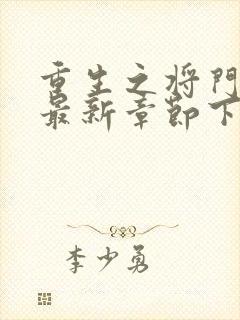 重生之将门
最新章节下
李少勇